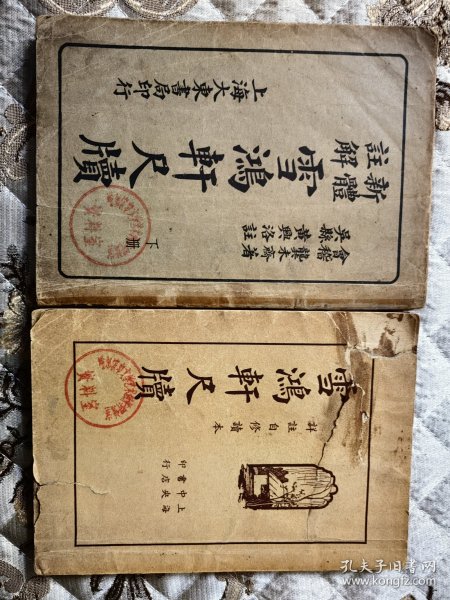 新體
註解
雪鴻軒尺牘
下冊
會稽龔未齋著
吳縣黃興洛註
上海大東書局印行
資料室
雪鴻軒尺牘
詳註
自修讀本
上海
中央
書店
印行
資料室
孔夫子旧书网
www.kongfz.com